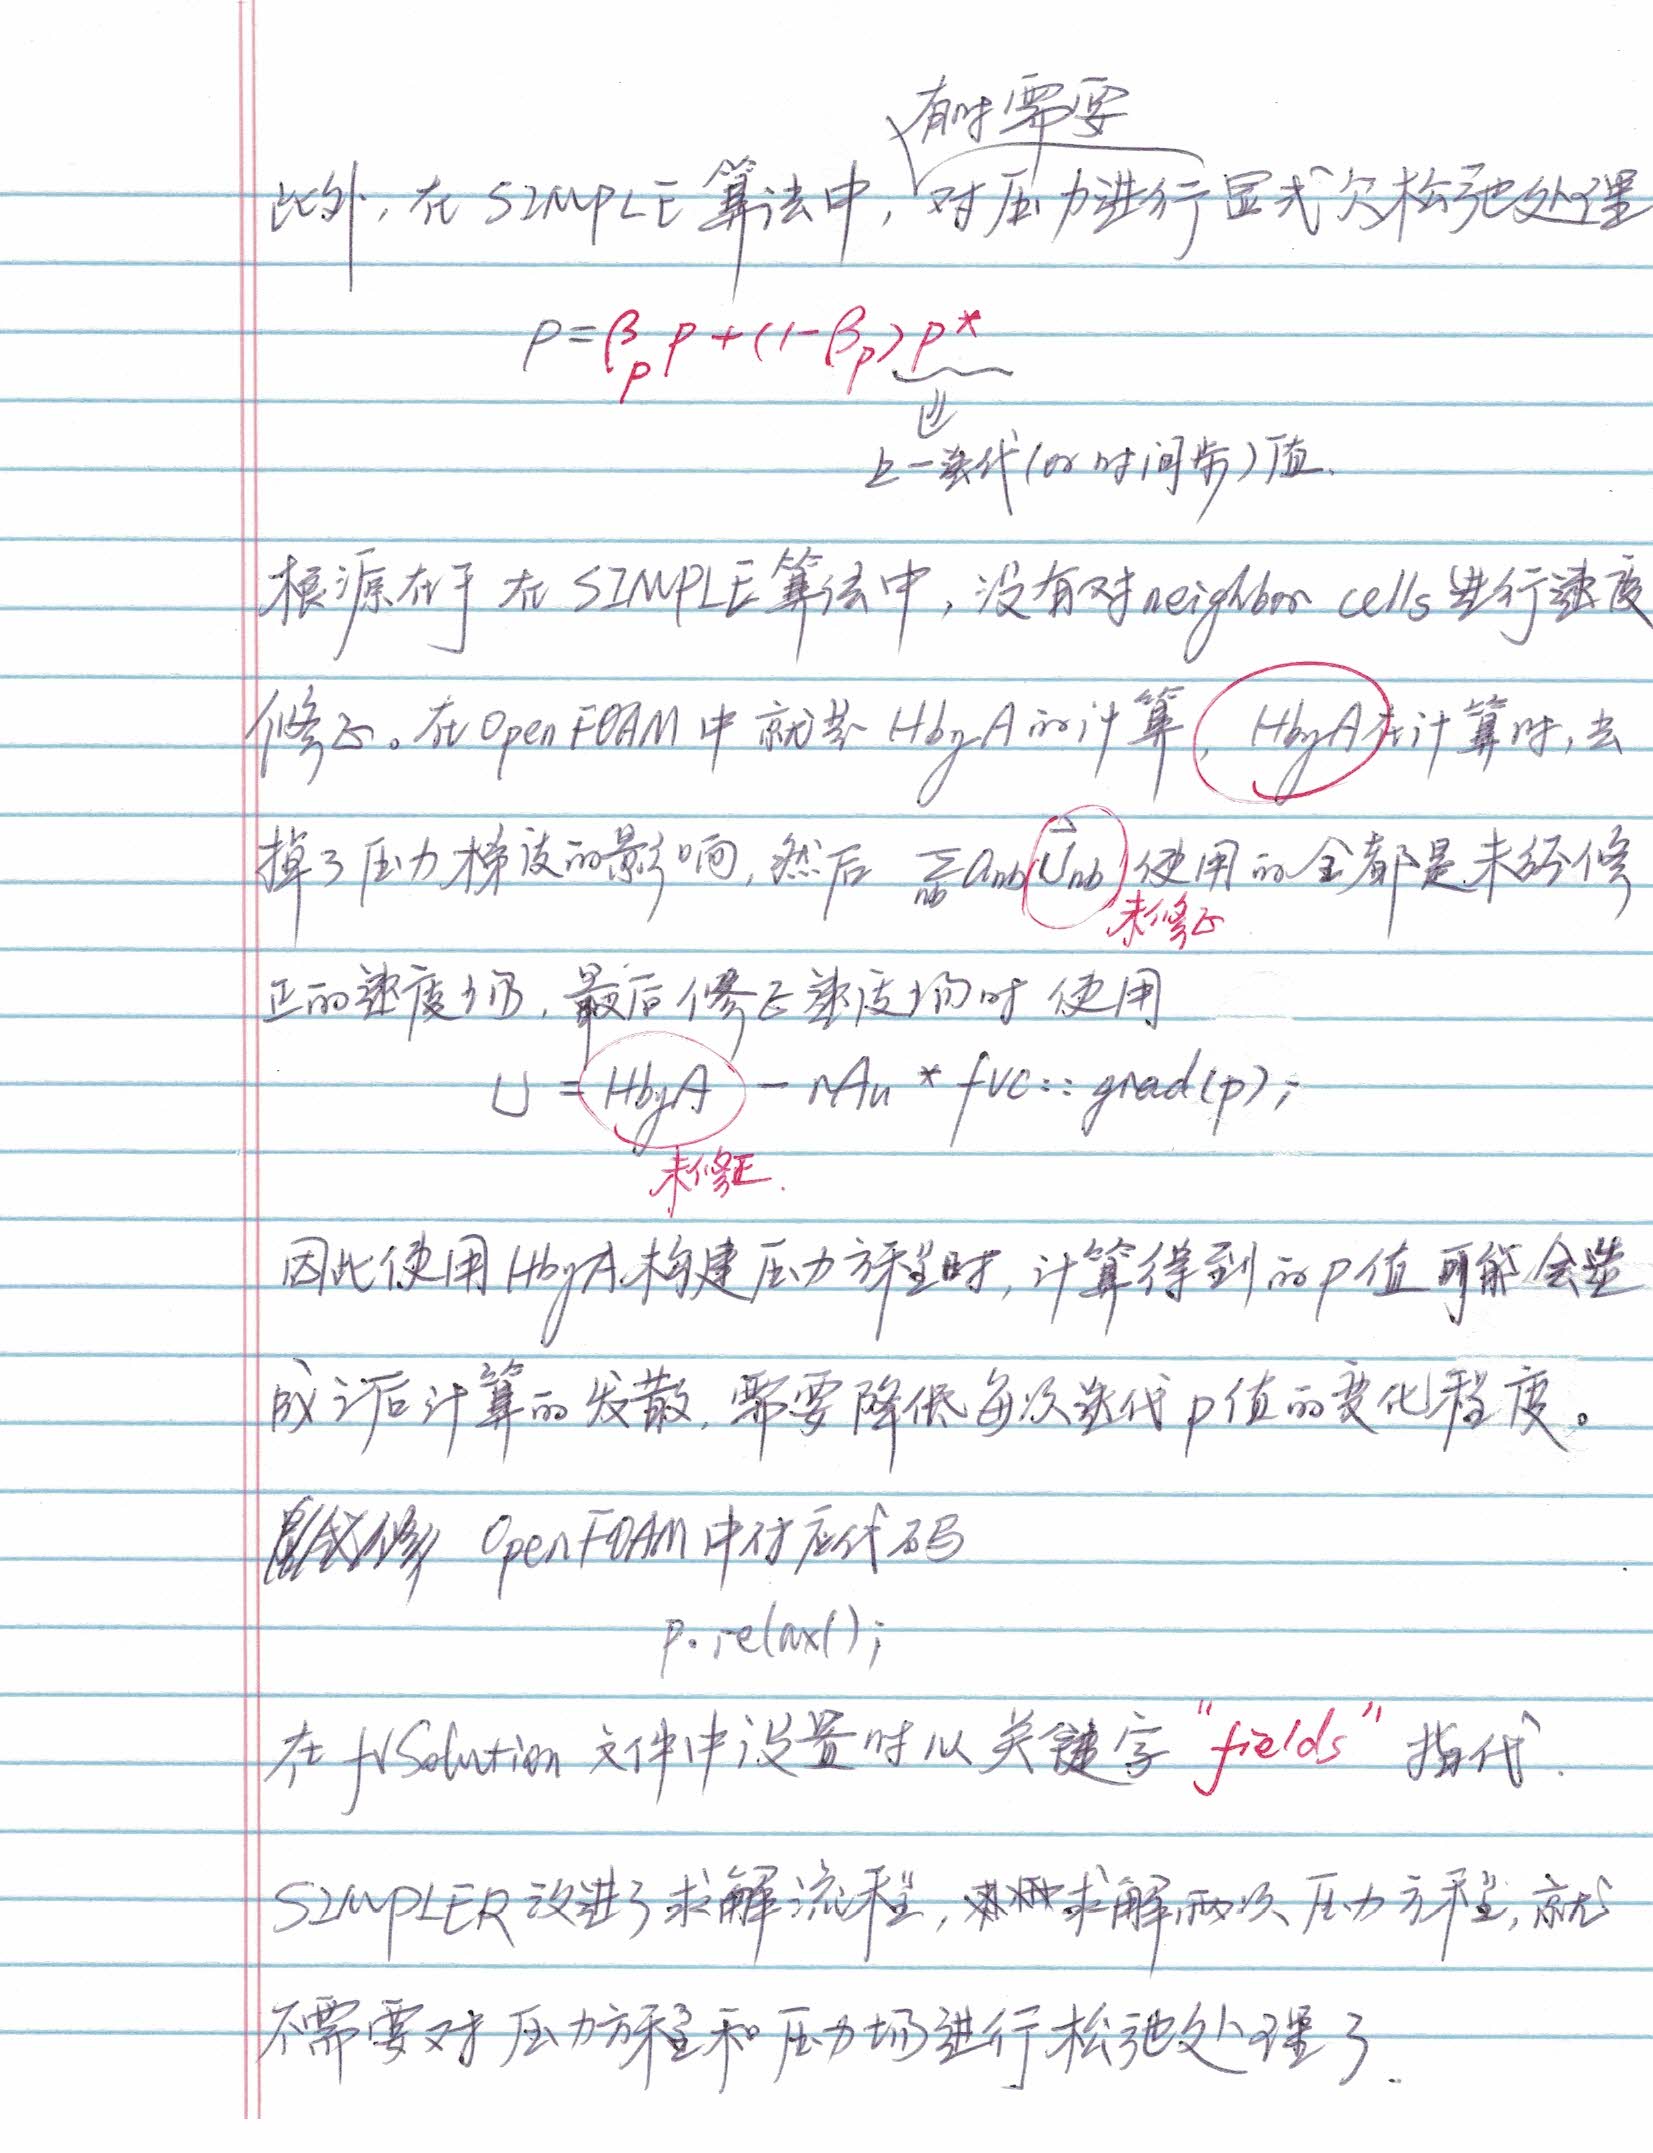 有时需要
此外，在 SIMPLE 算法中，对压力进行显式欠松弛处理
p = βp p + (1-βp) p*
⇓
上一迭代(or 时间步)值.
根源在于 在 SIMPLE 算法中，没有对 neighbor cells 进行速度
修正。在 OpenFOAM 中 就是 HbyA 的计算，HbyA 在计算时，去
掉了压力梯度的影响，然后 Σnb anb U⃗nb 使用的全都是未经修
未修正
正的速度场，最后修正速度场时 使用
U = HbyA - rAu * fvc::grad(p);
未修正.
因此使用 HbyA 构建压力方程时，计算得到的 p 值可能会造
成之后计算的发散，需要降低每次迭代 p 值的变化程度。
OpenFOAM 中对应代码
p.relax();
在 fvSolution 文件中设置时以关键字 "fields" 指代.
SIMPLER 改进了求解流程，求解两次压力方程，就
不需要对压力方程和压力场进行松弛处理了.